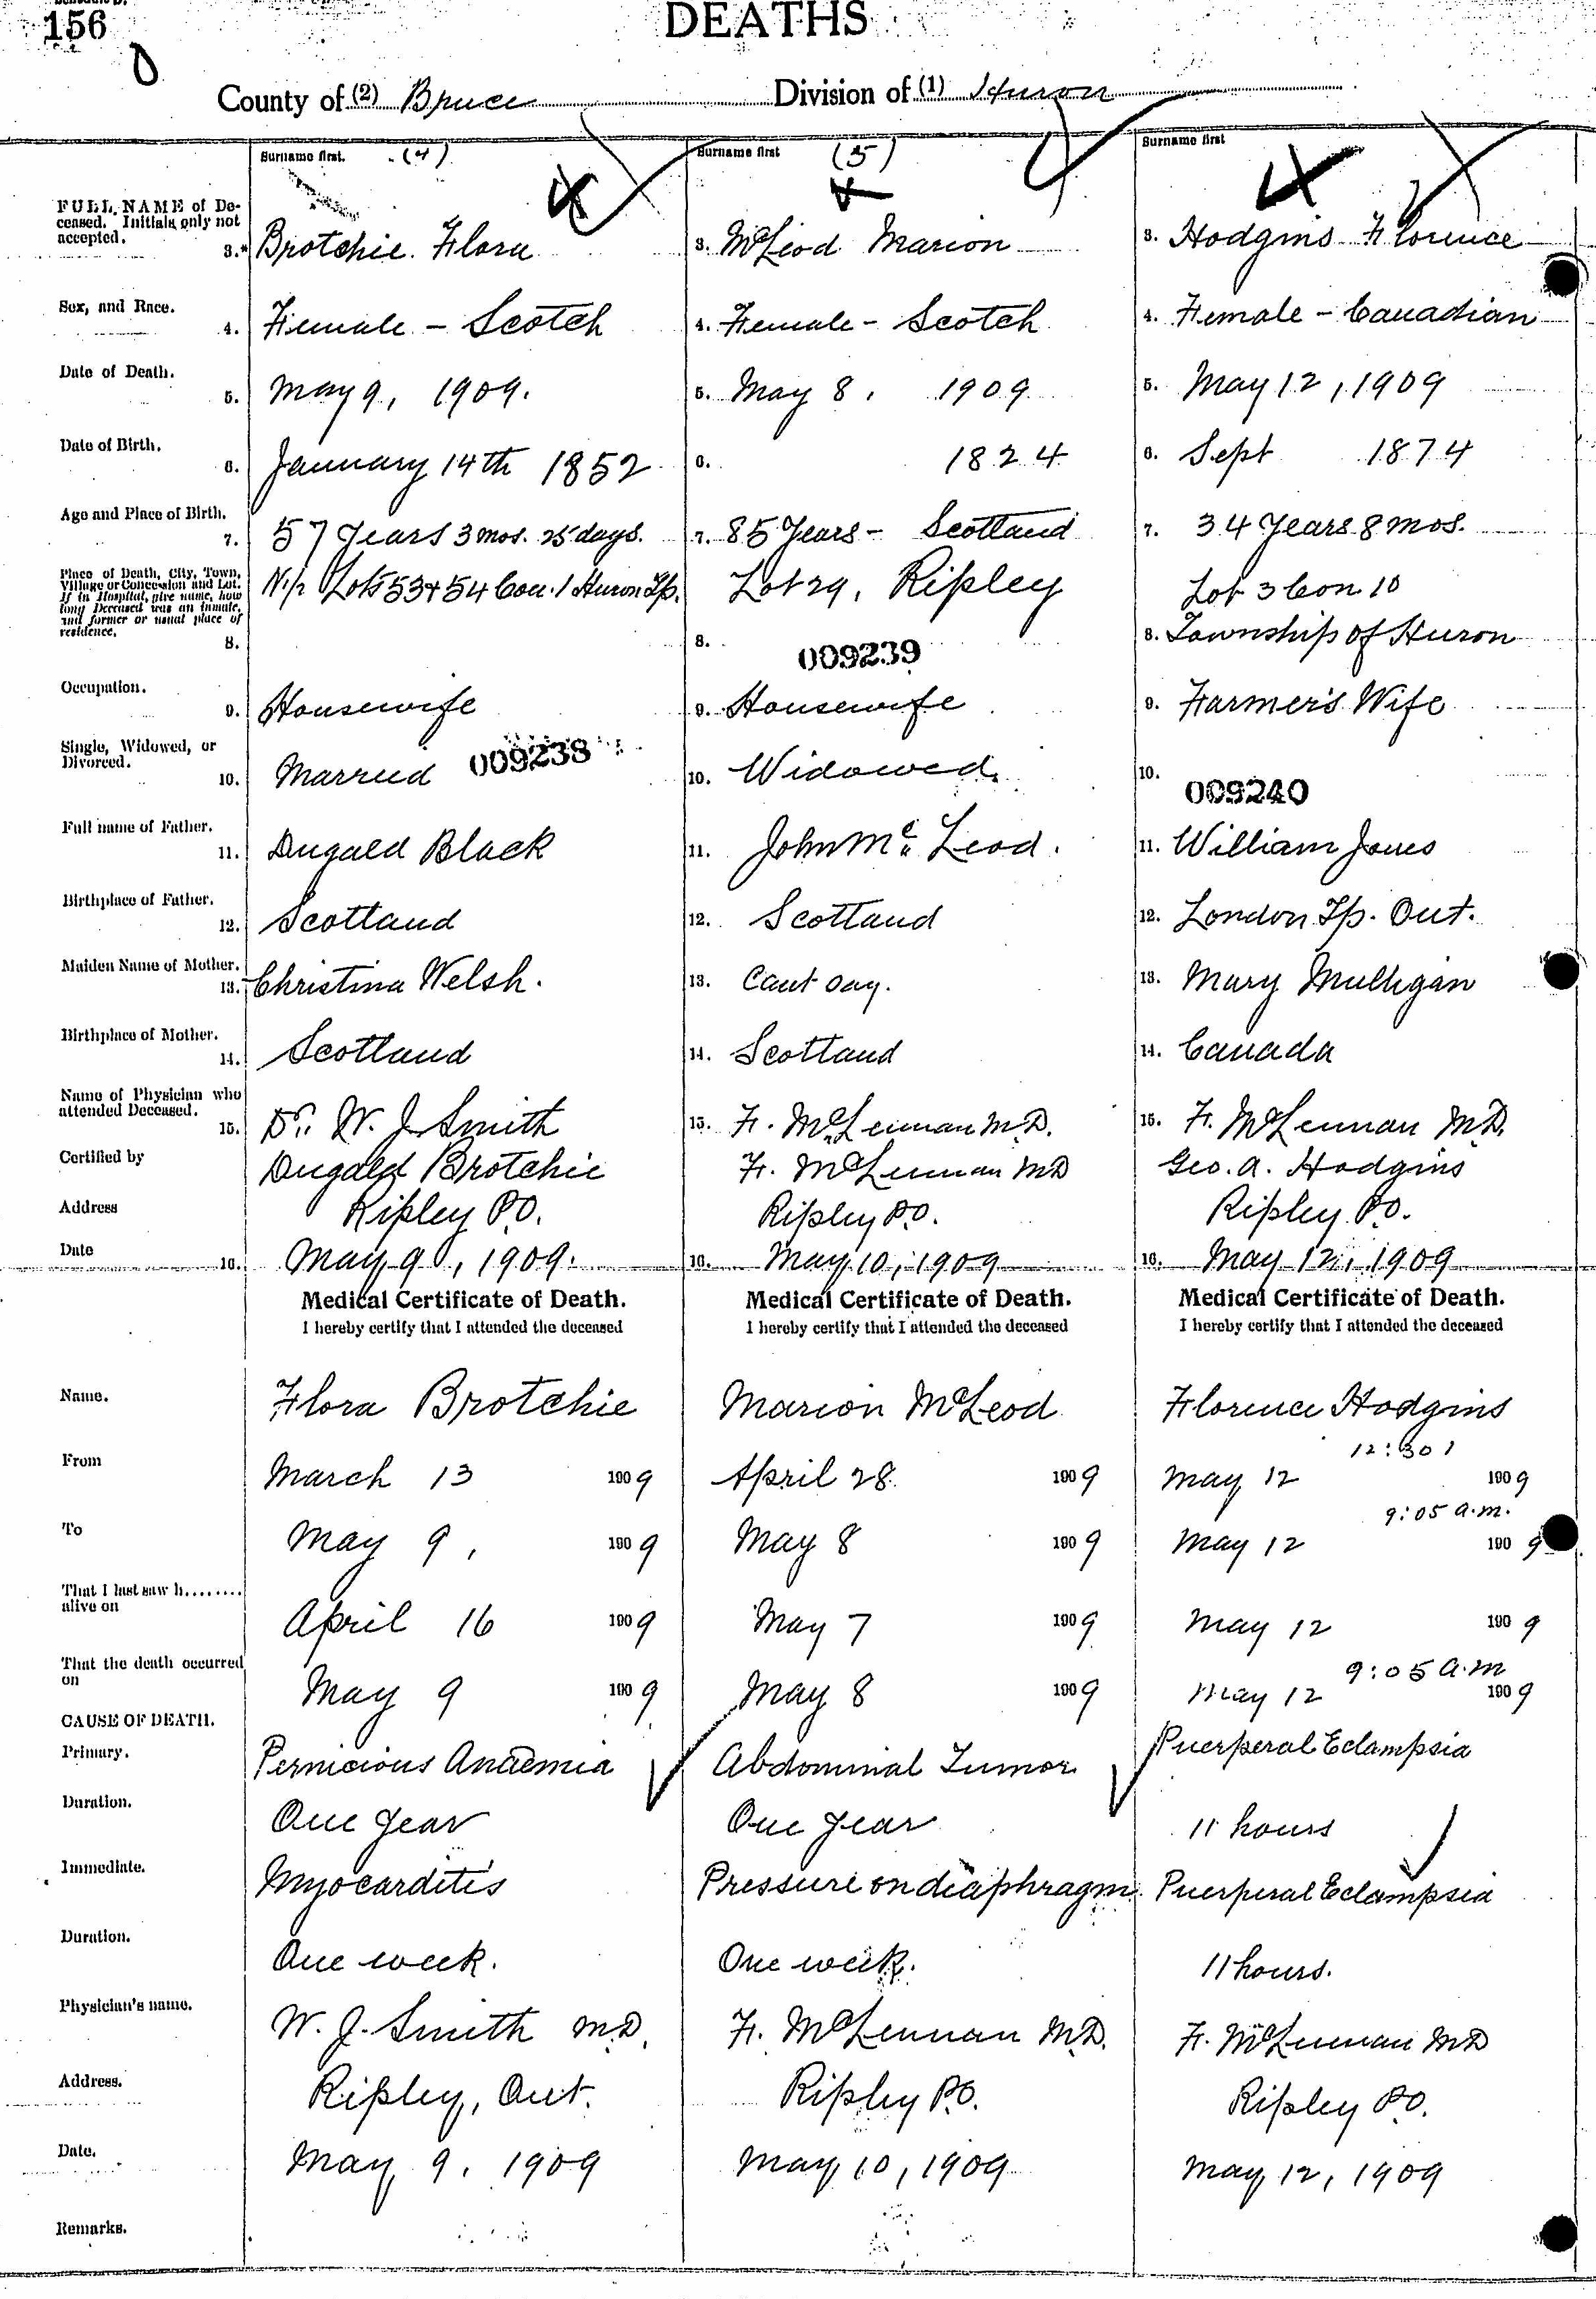 156
DEATHS
County of (2) Bruce Division of (1) Huron
Surname first. (4) Surname first (5) Surname first
FULL NAME of Deceased. Initials only not accepted. 3. Brotchie Flora 3. McLeod Marion 3. Hodgins Florence
Sex, and Race. 4. Female - Scotch 4. Female - Scotch 4. Female - Canadian
Date of Death. 5. May 9, 1909. 5. May 8, 1909 5. May 12, 1909
Date of Birth. 6. January 14th 1852 6. 1824 6. Sept 1874
Age and Place of Birth. 7. 57 Years 3 mos. 25 days. 7. 85 Years - Scotland 7. 34 Years 8 mos.
Place of Death, City, Town, Village or Concession and Lot. If in Hospital, give name, how long Deceased was an inmate, and former or usual place of residence. 8. N½ Lots 53+54 Con. 1 Huron Tp. 8. Lot 29, Ripley 8. Lot 3 Con 10 Township of Huron
009239
Occupation. 9. Housewife 9. Housewife 9. Farmer's Wife
Single, Widowed, or Divorced. 10. Married 009238 10. Widowed. 10. 009240
Full name of Father. 11. Dugald Black 11. John McLeod. 11. William Jones
Birthplace of Father. 12. Scotland 12. Scotland 12. London Tp. Ont.
Maiden Name of Mother. 13. Christina Welsh. 13. Cant say. 13. Mary Mulligan
Birthplace of Mother. 14. Scotland 14. Scotland 14. Canada
Name of Physician who attended Deceased. 15. Dr. W. J. Smith 15. F. McLennan M.D. 15. F. McLennan M.D.
Certified by Dugald Brotchie F. McLennan MD Geo. A. Hodgins
Address Ripley P.O. Ripley P.O. Ripley P.O.
Date 16. May 9, 1909. 16. May 10, 1909 16. May 12, 1909
Medical Certificate of Death. Medical Certificate of Death. Medical Certificate of Death.
I hereby certify that I attended the deceased I hereby certify that I attended the deceased I hereby certify that I attended the deceased
Name. Flora Brotchie Marion McLeod Florence Hodgins
12:30
From March 13 1909 April 28 1909 May 12 1909
9:05 a.m.
To May 9, 1909 May 8 1909 May 12 1909
That I last saw h........ alive on April 16 1909 May 7 1909 May 12 1909
9:05 a.m
That the death occurred on May 9 1909 May 8 1909 May 12 1909
CAUSE OF DEATH.
Primary. Pernicious Anaemia Abdominal Tumor Puerperal Eclampsia
Duration. One year One year 11 hours
Immediate. Myocarditis Pressure on diaphragm Puerperal Eclampsia
Duration. One week. One week. 11 hours.
Physician's name. W. J. Smith M.D. F. McLennan M.D. F. McLennan MD
Address. Ripley, Ont. Ripley P.O. Ripley P.O.
Date. May 9, 1909 May 10, 1909 May 12, 1909
Remarks.